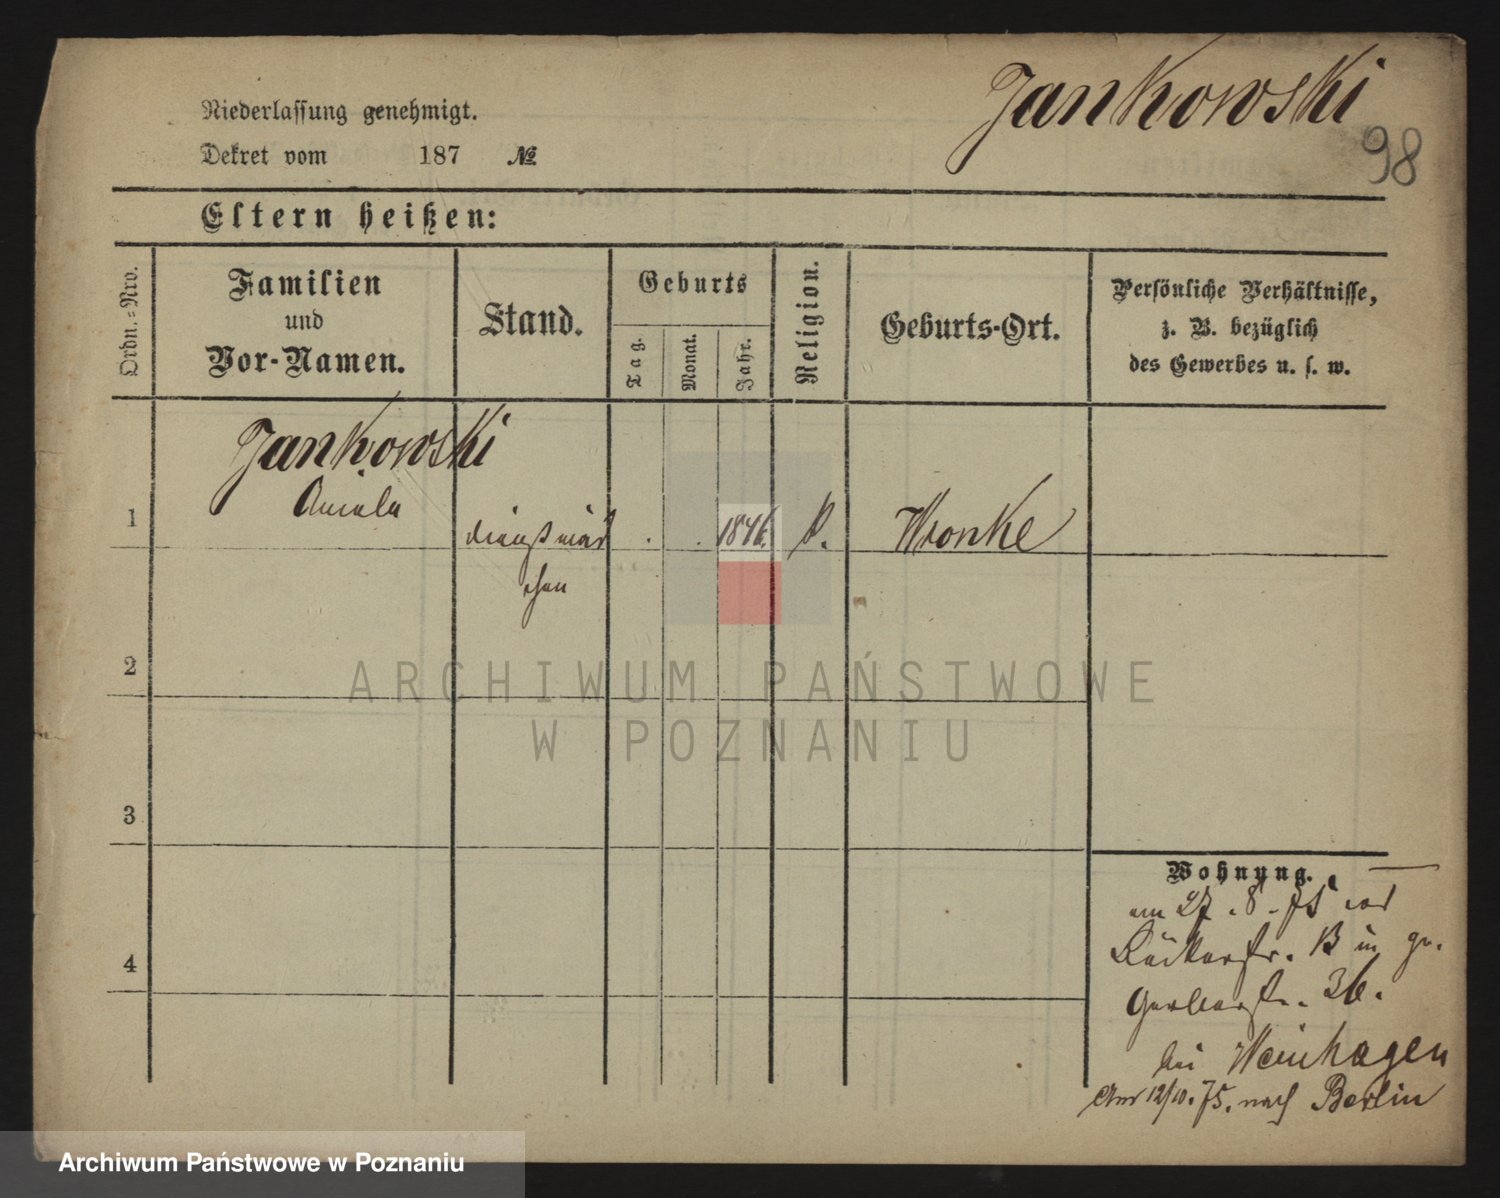 Jankowski
98
Niederlassung genehmigt.
Dekret vom 187 №
Eltern heißen:
Ordn.-Nro.
Familien
und
Vor-Namen.
Stand.
Geburts
Tag.
Monat.
Jahr.
Religion.
Geburts-Ort.
Persönliche Verhältnisse,
z. B. bezüglich
des Gewerbes u. s. w.
Jankowski
1 Aniela
dienstmäd
chen
1846.
k.
Wronke
2
3
4
Wohnung.
am 27.8.75 von
Bäckerstr. 13 in gr.
Gerberstr. 36.
bei Weinhagen
Am 12/10.75. nach Berlin
ARCHIWUM PAŃSTWOWE
W POZNANIU
Archiwum Państwowe w Poznaniu